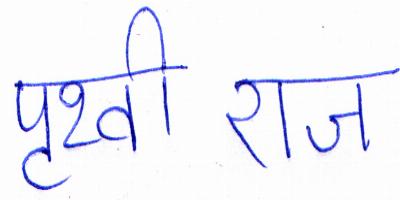 पृथ्वी राज